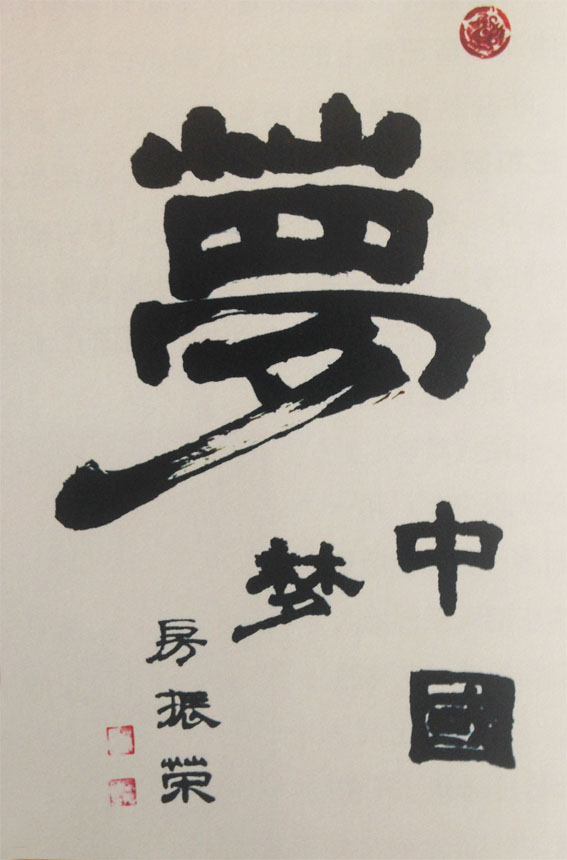 夢
中國
梦
房振荣